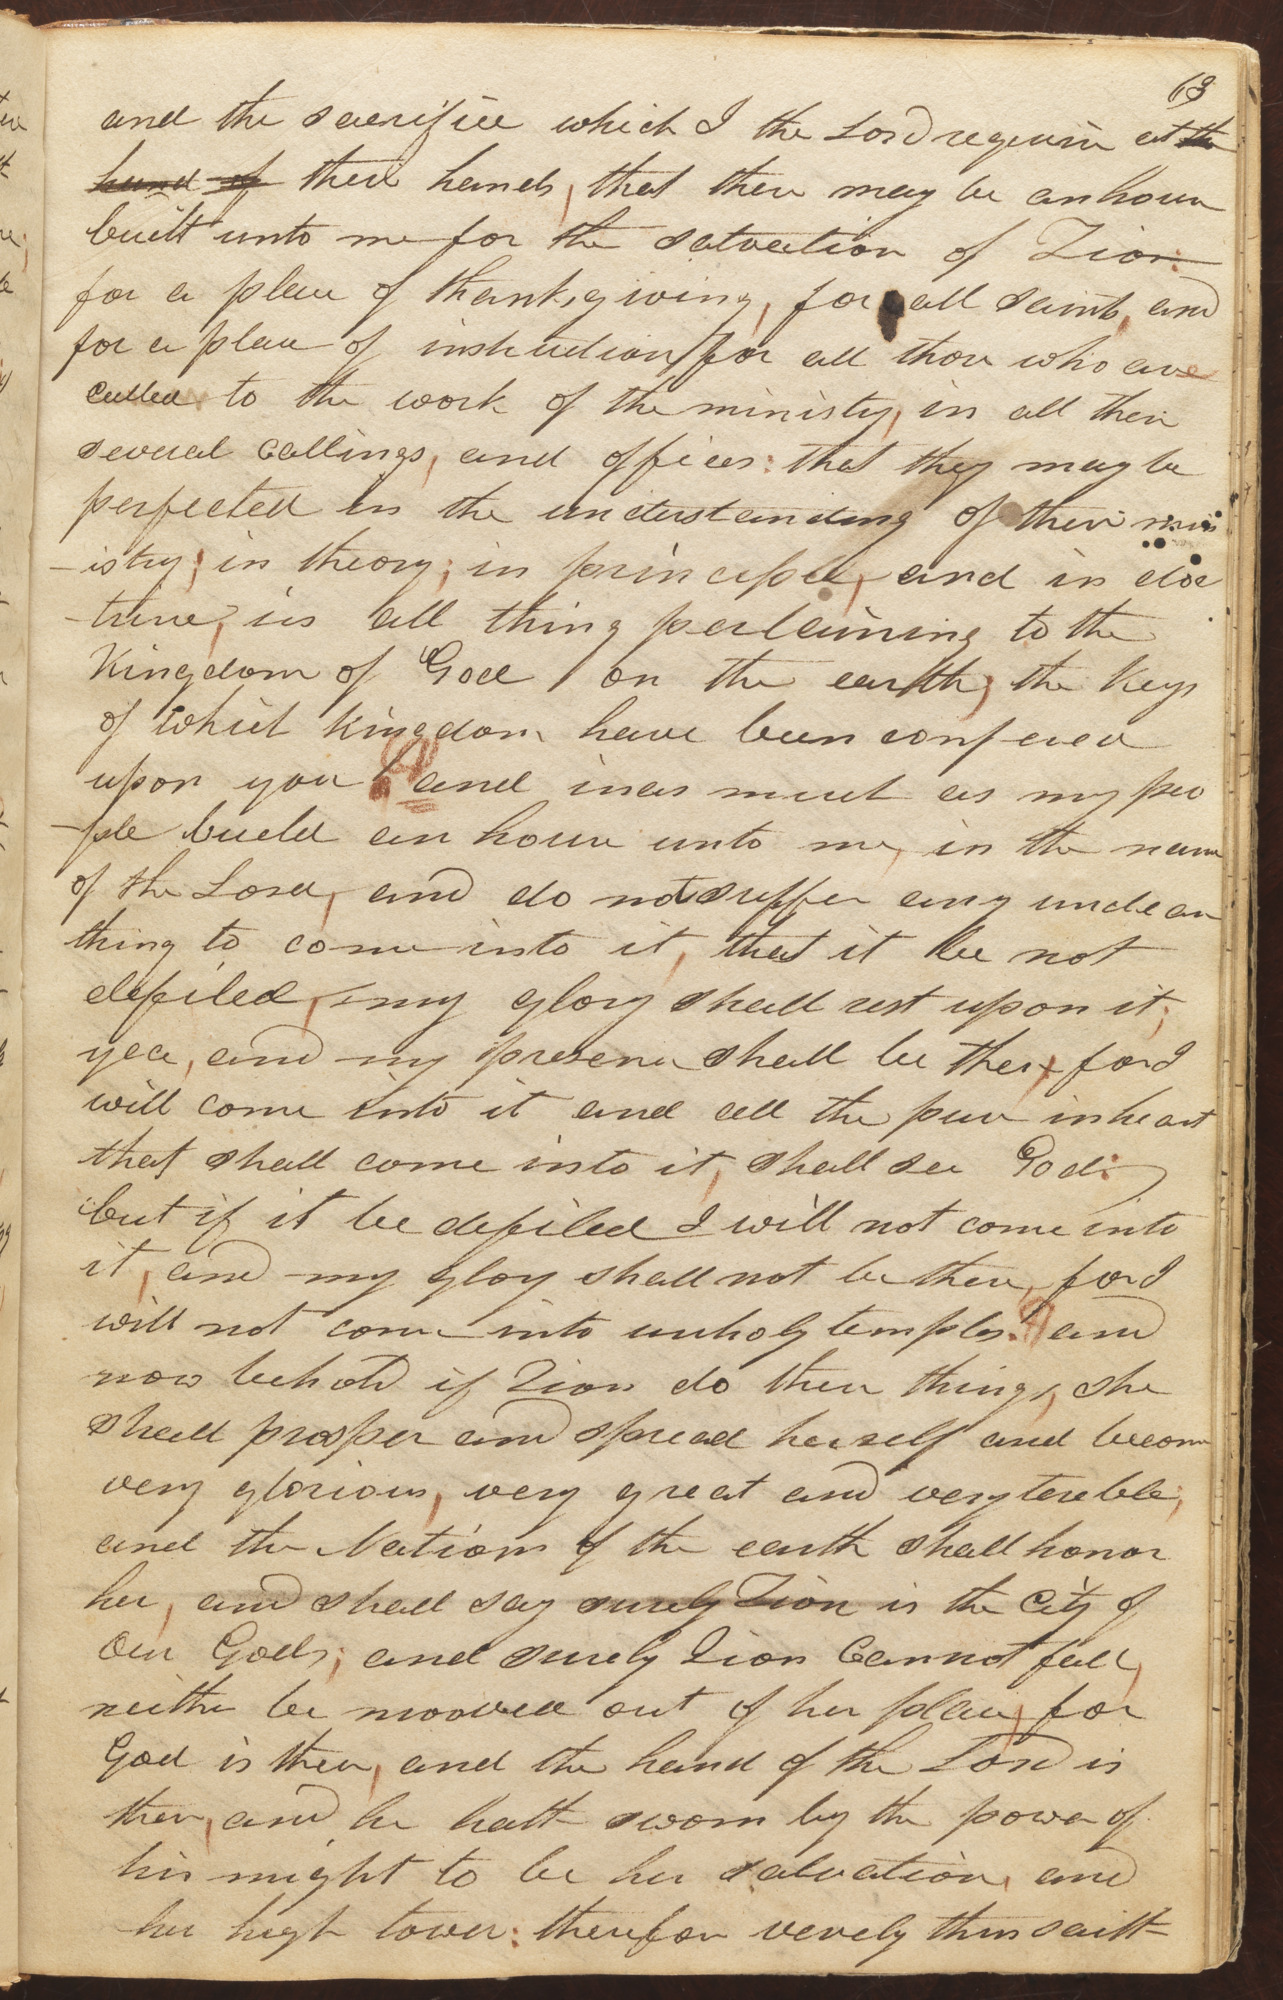 63
and the sacrifice which I the Lord require at the
hand of their hands, that there may be an house
built unto me for the salvation of Zion:
for a place of thanksgiving, for all saints, and
for a place of instruction, for all those who are
called to the work of the ministry, in all their
several callings, and offices: that they may be
perfected in the understanding of their min
-istry; in theory; in principle, and in doc
-trine, in all thing pertaining to the
Kingdom of God on the earth, the Keys
of which kingdom have been confered
upon you and inas much as my peo
-ple build an house unto me, in the name
of the Lord, and do not suffer any unclean
thing to come into it, that it be not
defiled, my glory shall rest upon it;
yea, and my presence shall be there for I
will come into it and all the pure in heart
that shall come into it, shall see God:
but if it be defiled I will not come into
it, and my glory shall not be there, for I
will not come into unholy temples. and
now behold if Zion do these things, she
shall prosper and spread herself and become
very glorious, very great and very tereble;
and the Nations of the earth shall honor
her, and shall say surely Zion is the City of
our God; and surely Zion Cannot fall,
neither be mooved out of her place, for
God is there, and the hand of the Lord is
there, and he hath sworn by the power of
his might to be her salvation, and
her high tower: therefore verely thus saith